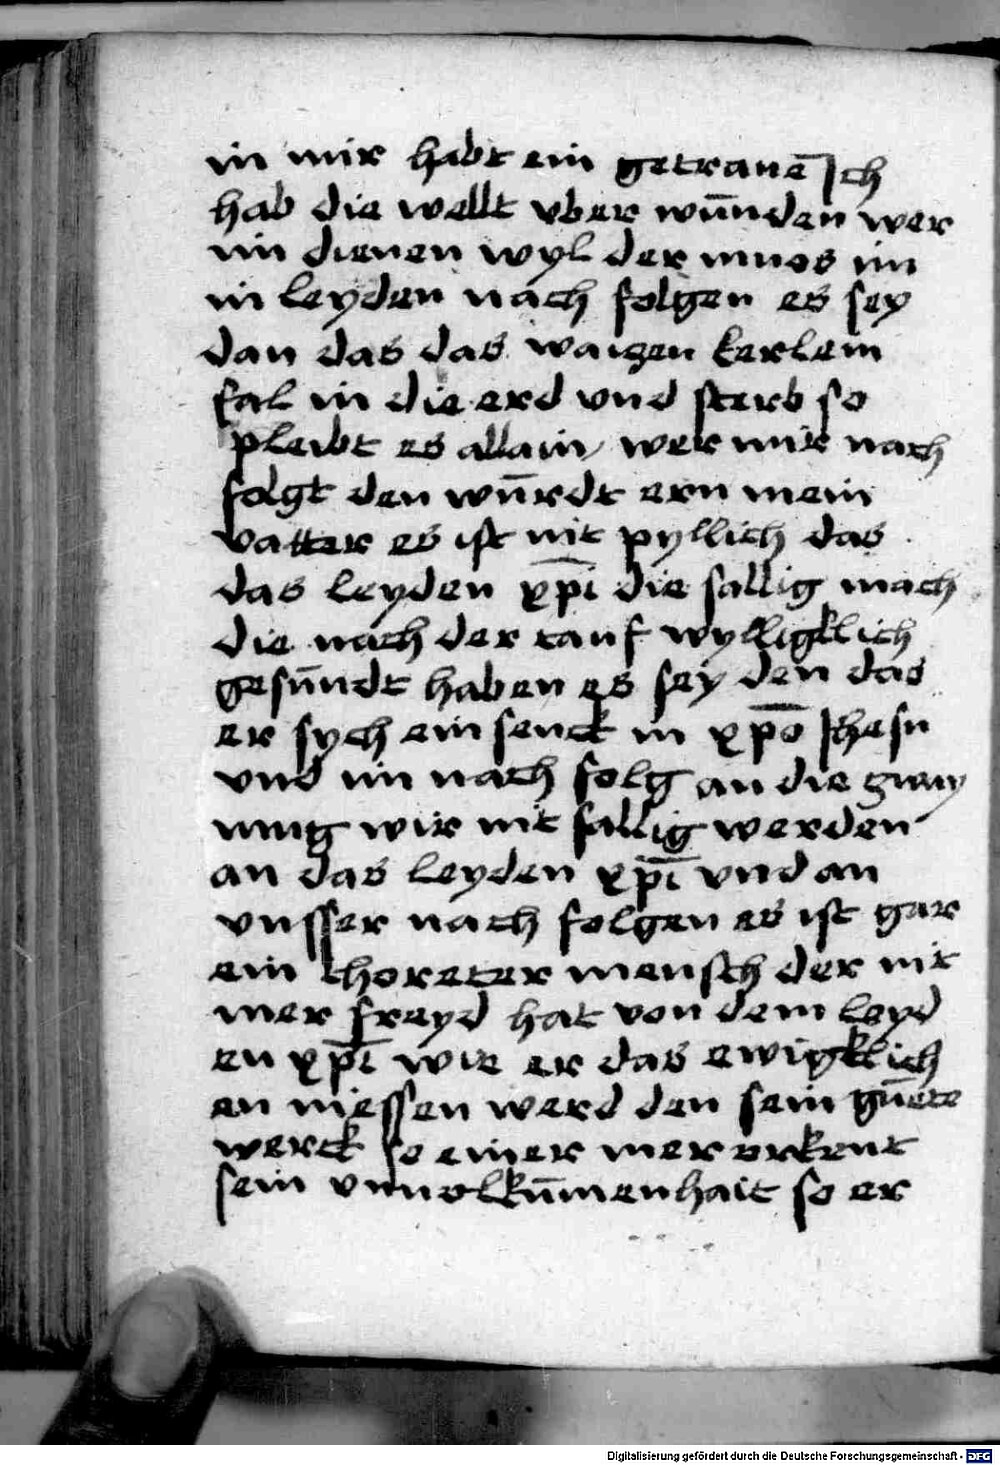 in mir habt ein getrauē Ich
hab die wellt vber wūnden wer
im dienen wyl der muos im
in leyden nach folgen es sey
dan das das waigen kerlem
fal in die erd vnd sterb so
pleibt es allain wer mir nach
folgt den wūrdt ern mein
vatter es ist nit pyllich das
das leyden xp̄i die sallig mach
die nach der tauf wylligklich
gesūndt haben es sey den das
er sych ein senck in xp̄o Jhesu
vnd im nach folg an die
nung wir nit sallig werden
an das leyden xp̄i vnd an
vnsser nach folgen es ist gar
ein thoreter mensch der nit
mer freyd hat von dem leyd
en xp̄i wie er das ewigklich
en niessen werd den sein gūete
werck so einer mer erkent
sein vnuolkūmenhait so er
Digitalisierung gefördert durch die Deutsche Forschungsgemeinschaft - DFG